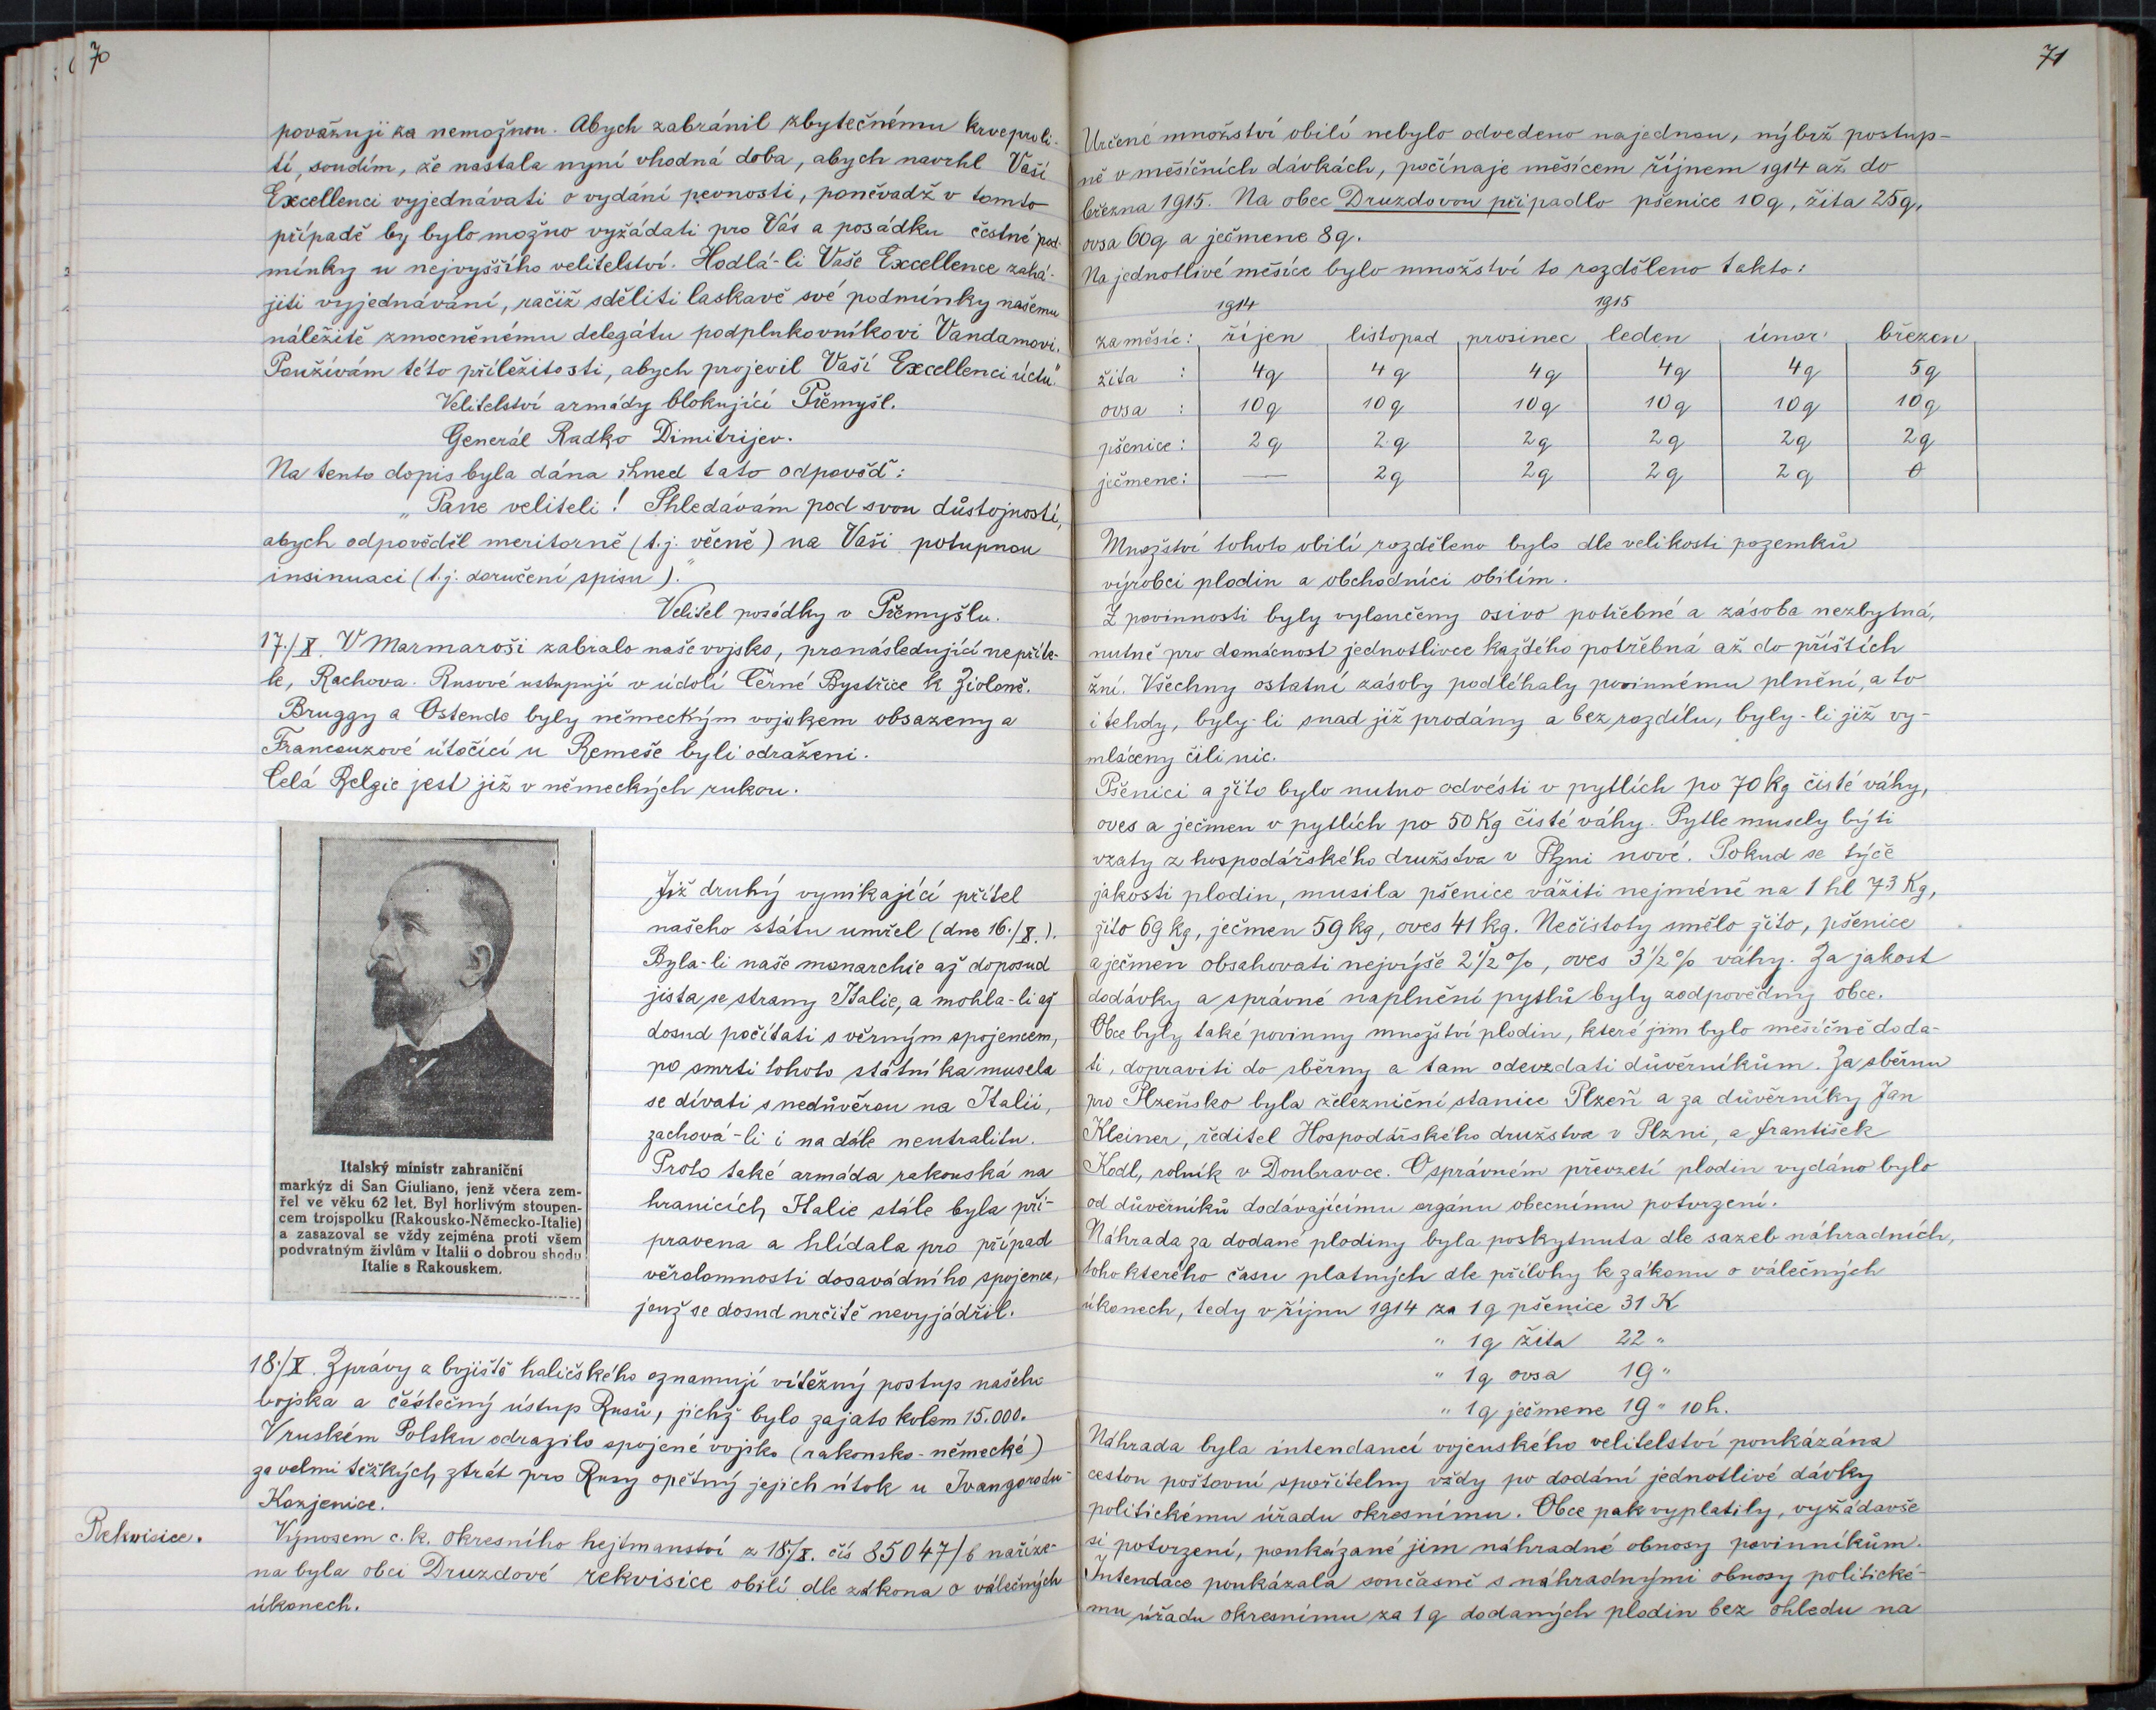 70
považuji za nemožnou. Abych zabránil zbytečnému krveproli-
tí, soudím, že nastala nyní vhodná doba, abych navrhl Vaší
Excellenci vyjednávati o vydání pevnosti, poněvadž v tomto
případě by bylo možno vyžádati pro Vás a posádku čestné pod-
mínky u nejvyššího velitelství. Hodlá-li Vaše Excellence zahá-
jiti vyjednávání, račiž sděliti laskavě své podmínky našemu
náležitě zmocněnému delegátu podplukovníkovi Vandamovi.
Používám této příležitosti, abych projevil Vaší Excellenci úctu."
Velitelství armády blokující Přemyšl.
Generál Radko Dimitrijev.
Na tento dopis byla dána ihned tato odpověď:
„Pane veliteli! Shledávám pod svou důstojností,
abych odpověděl meritorně (t.j. věčně) na Vaši potupnou
insinuaci (t.j. doručení spisu)."
Velitel posádky v Přemyšlu.
17./X. V Marmaroši zabralo naše vojsko, pronásledující nepříte-
le, Rachova. Rusové ustupují v údolí Černé Bystřice k Zioloně.
Bruggy a Ostende byly německým vojskem obsazeny a
Francouzové útočící u Remeše byli odraženi.
Celá Belgie jest již v německých rukou.
Italský ministr zahraniční
markýz di San Giuliano, jenž včera zem-
řel ve věku 62 let. Byl horlivým stoupen-
cem trojspolku (Rakousko-Německo-Italie)
a zasazoval se vždy zejména proti všem
podvratným živlům v Italii o dobrou shodu
Italie s Rakouskem.
Již druhý vynikající přítel
našeho státu umřel (dne 16./X.).
Byla-li naše monarchie až doposud
jista se strany Italie, a mohla-li až
dosud počítati s věrným spojencem,
po smrti tohoto státníka musela
se dívati s nedůvěrou na Italii,
zachová-li i na dále neutralitu.
Proto také armáda rakouská na
hranicích Italie stále byla při-
pravena a hlídala pro případ
věrolomnosti dosavádního spojence,
jenž se dosud určitě nevyjádřil.
18./X. Zprávy z bojiště haličského oznamují vítězný postup našeho
vojska a částečný ústup Rusů, jichž bylo zajato kolem 15.000.
V ruském Polsku odrazilo spojené vojsko (rakousko-německé)
za velmi těžkých ztrát pro Rusy opětný jejich útok u Ivangorodu-
Kozjenice.
Rekvisice.
Výnosem c.k. okresního hejtmanství z 18./X. čís 85047/6 naříze-
na byla obci Druzdové rekvisice obilí dle zákona o válečných
úkonech.
71
Určené množství obilí nebylo odvedeno najednou, nýbrž postup-
ně v měsíčních dávkách, počínaje měsícem říjnem 1914 až do
března 1915. Na obec Druzdovou připadlo pšenice 10q, žita 25q,
ovsa 60q a ječmene 8q.
Na jednotlivé měsíce bylo množství to rozděleno takto:
1914 1915
za měsíc: říjen listopad prosinec leden únor březen
žita : 4q 4q 4q 4q 4q 5q
ovsa : 10q 10q 10q 10q 10q 10q
pšenice: 2q 2q 2q 2q 2q 2q
ječmene: — 2q 2q 2q 2q 0
Množství tohoto obilí rozděleno bylo dle velikosti pozemků
výrobci plodin a obchodníci obilím.
Z povinnosti byly vyloučeny osivo potřebné a zásoba nezbytná,
nutně pro domácnost jednotlivce každého potřebná až do příštích
žní. Všechny ostatní zásoby podléhaly povinnému plnění, a to
i tehdy, byly-li snad již prodány a bez rozdílu, byly-li již vy-
mláceny čili nic.
Pšenici a žito bylo nutno odvésti v pytlích po 70 kg čisté váhy,
oves a ječmen v pytlích po 50 Kg čisté váhy. Pytle musely býti
vzaty z hospodářského družstva v Plzni nové. Pokud se týče
jakosti plodin, musila pšenice vážiti nejméně na 1 hl 73 Kg,
žito 69 kg, ječmen 59 kg, oves 41 kg. Nečistoty smělo žito, pšenice
a ječmen obsahovati nejvýše 2½%, oves 3½% váhy. Za jakost
dodávky a správné naplnění pytlů byly zodpovědny obce.
Obce byly také povinny množství plodin, které jim bylo měsíčně doda-
ti, dopraviti do sběrny a tam odevzdati důvěrníkům. Za sběrnu
pro Plzeňsko byla železniční stanice Plzeň a za důvěrníky Jan
Kleiner, ředitel Hospodářského družstva v Plzni, a František
Kodl, rolník v Doubravce. O správném převzetí plodin vydáno bylo
od důvěrníků dodávajícímu orgánu obecnímu potvrzení.
Náhrada za dodané plodiny byla poskytnuta dle sazeb náhradních,
toho kterého času platných dle přílohy k zákonu o válečných
úkonech, tedy v říjnu 1914 za 1q pšenice 31 K
" 1q žita 22 "
" 1q ovsa 19 "
" 1q ječmene 19 " 10 h.
Náhrada byla intendancí vojenského velitelství poukázána
cestou poštovní spořitelny vždy po dodání jednotlivé dávky
politickému úřadu okresnímu. Obce pak vyplatily, vyžádavše
si potvrzení, poukázané jim náhradné obnosy povinníkům.
Intendace poukázala současně s náhradnými obnosy politické-
mu úřadu okresnímu za 1q dodaných plodin bez ohledu na